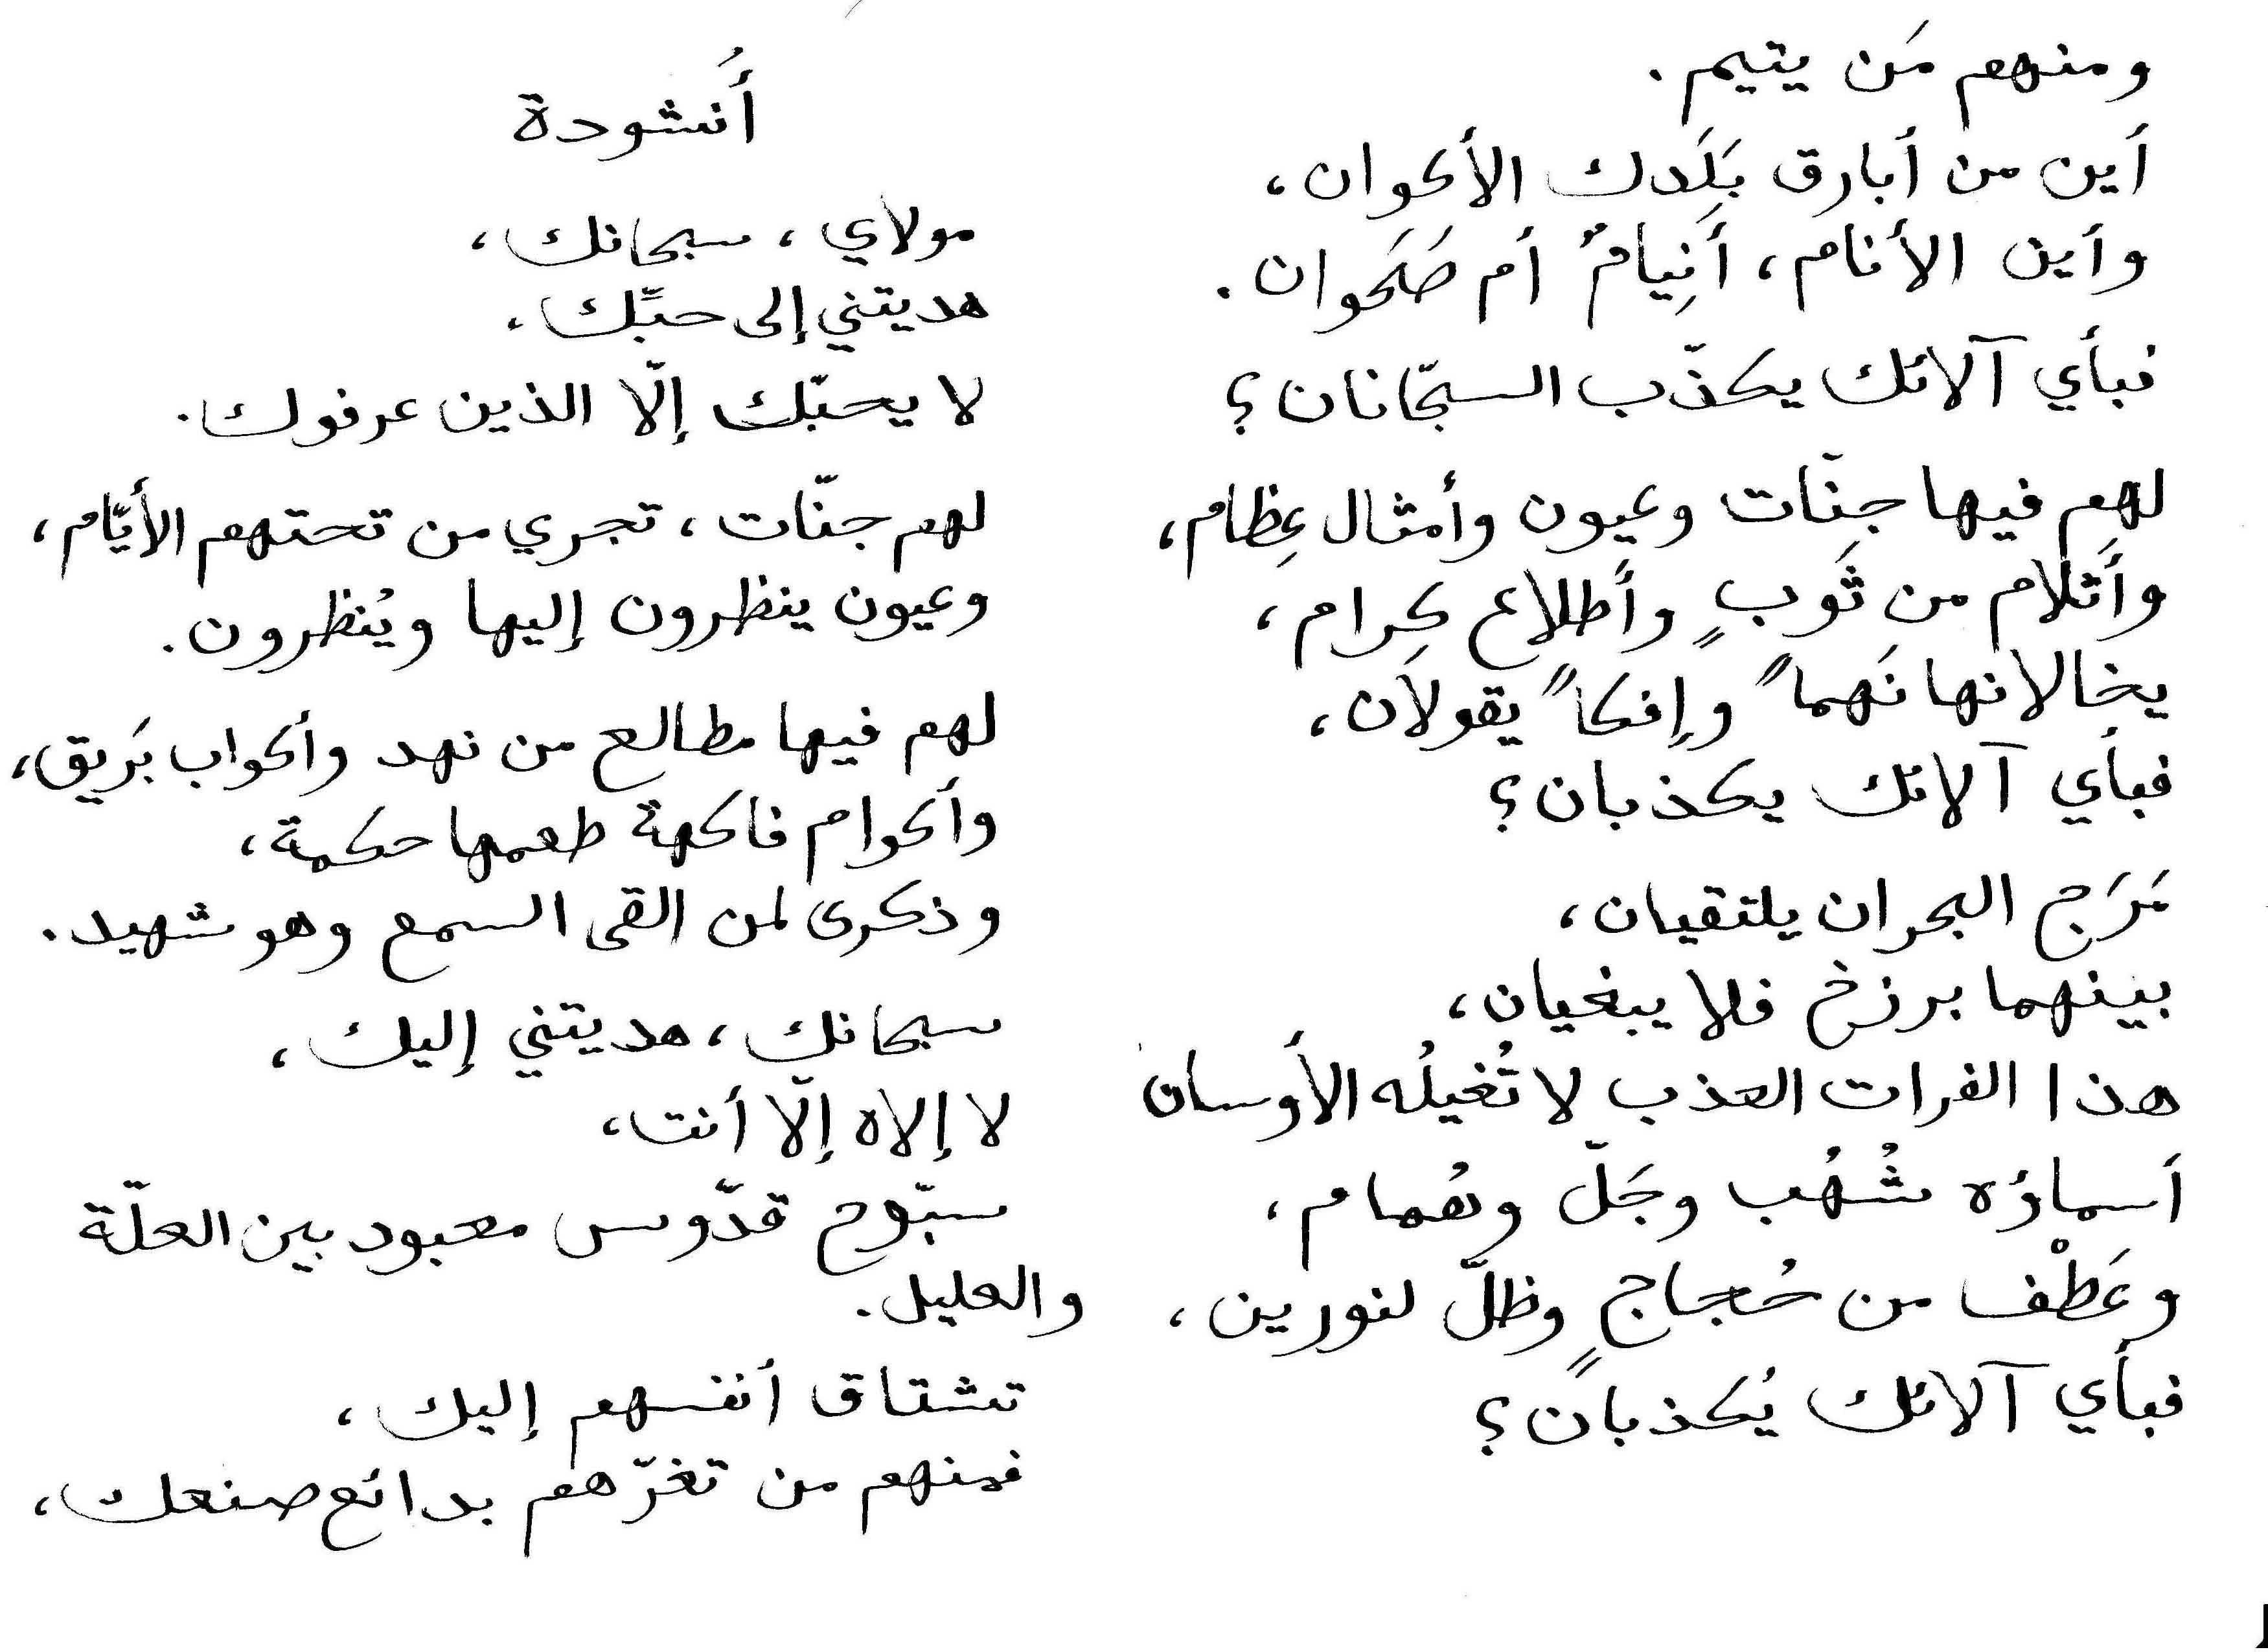 أُنشودة
مولاي، سبحانك،
هديتني إلى حبّك،
لا يحبّك إلّا الذين عرفوك.
لهم جنّات، تجري من تحتهم الأيّام،
وعيون ينظرون إليها ويُنظرون.
لهم فيها مطالع من نهد وأكواب بَريق،
وأكوام فاكهة طعمها حكمة،
وذكرى لمن القى السمع وهو شهيد.
سبحانك، هديتني إليك،
لا إلاه إلّا أنت،
سبّوح قدّوس معبود بين العلّة
والعليل.
تشتاق أنفسهم إليك،
فمنهم من تغرّهم بدائع صنعك،
ومنهم مَن يتيم.
أين من أبارق بَلَدك الأكوان،
وأين الأنام، أَنِيامٌ أم صَحَوان.
فبأي آلائك يكذّب السبحّانان؟
لهم فيها جنّات وعيون وأمثال عِظام،
وأَثلام من ثَوبٍ وأَطلاع كِرام،
يخالانها نَهماً وإفكاً يقولان،
فبأي آلائك يكذبان؟
مَرَج البحران يلتقيان،
بينهما برزخ فلا يبغيان،
هذا الفرات العذب لا تُغيلُه الأوسان
أسماؤه شُهُب وجَلّ وهُمام،
وعَطْف من حُجاجٍ وظلّ لنورين،
فبأي آلائك يُكذبان؟